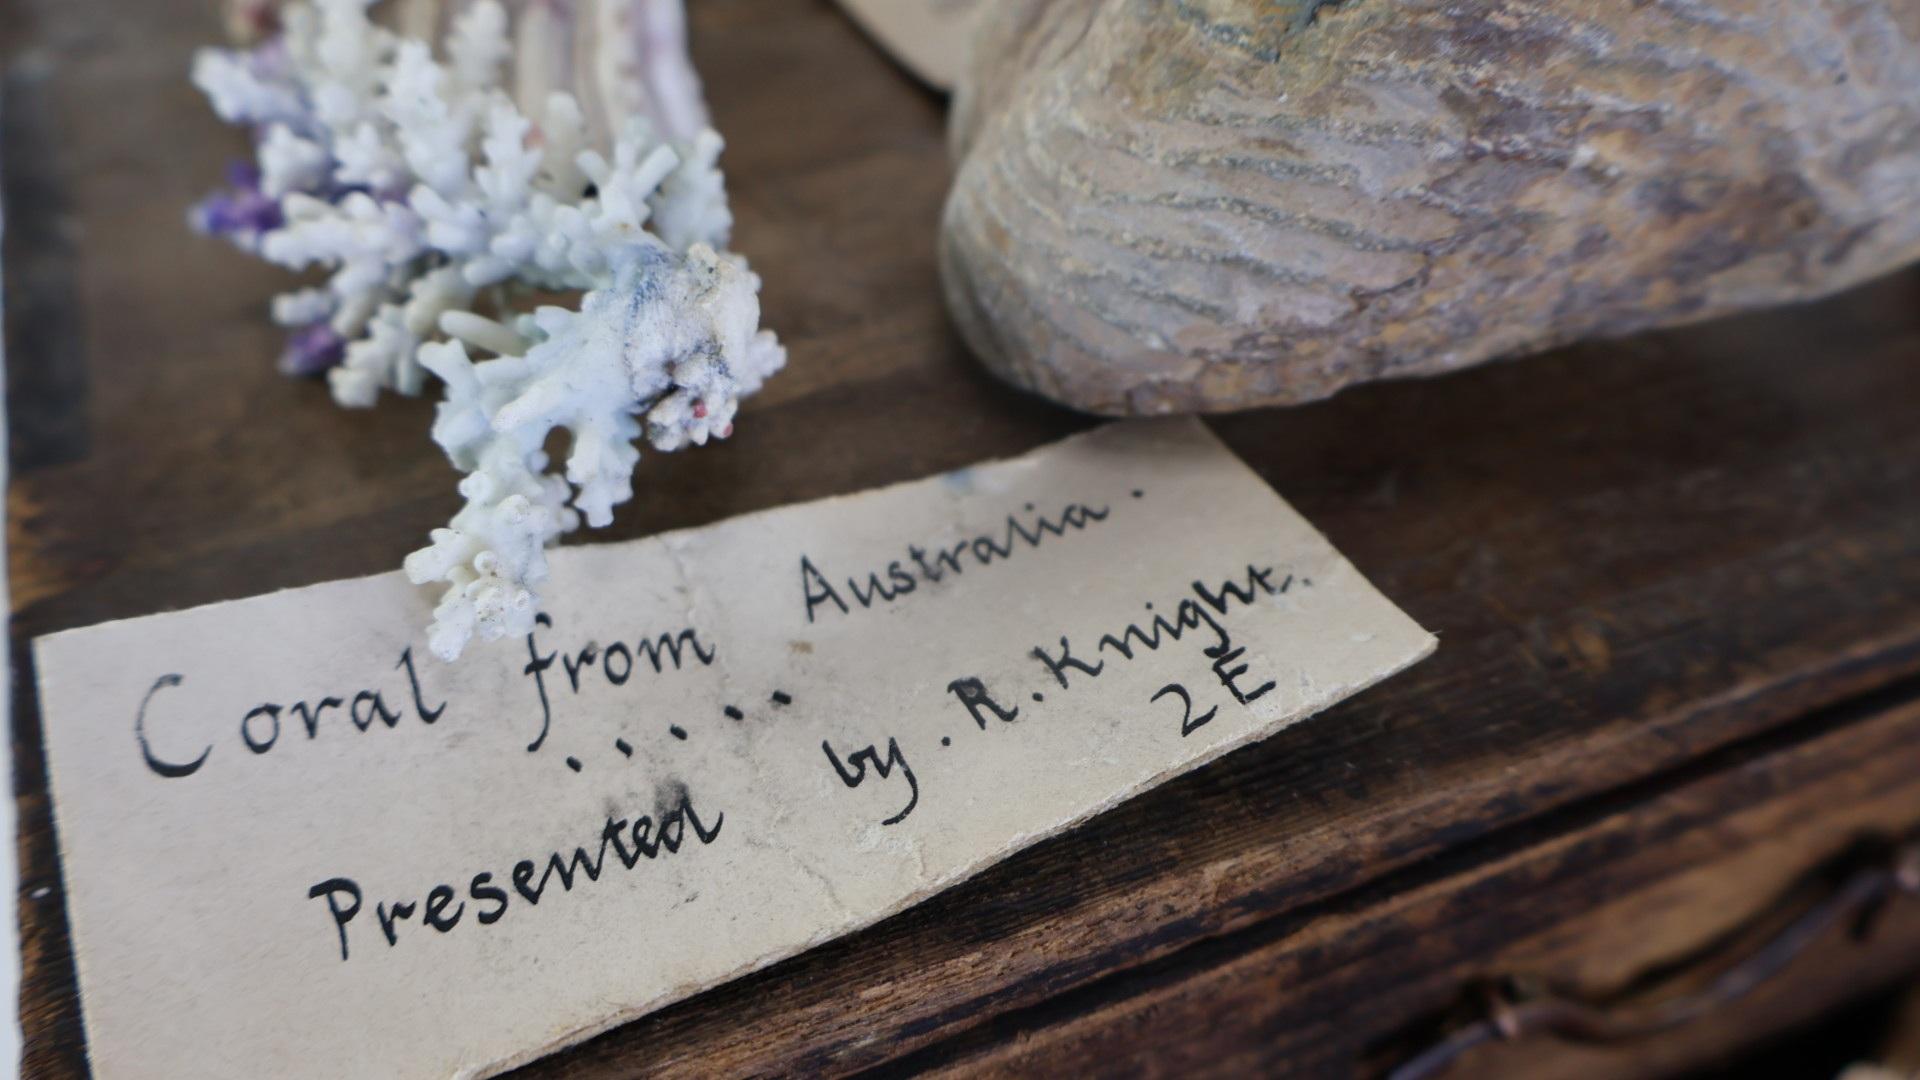 Coral from Australia.
.....
Presented by. R. Knight.
2E